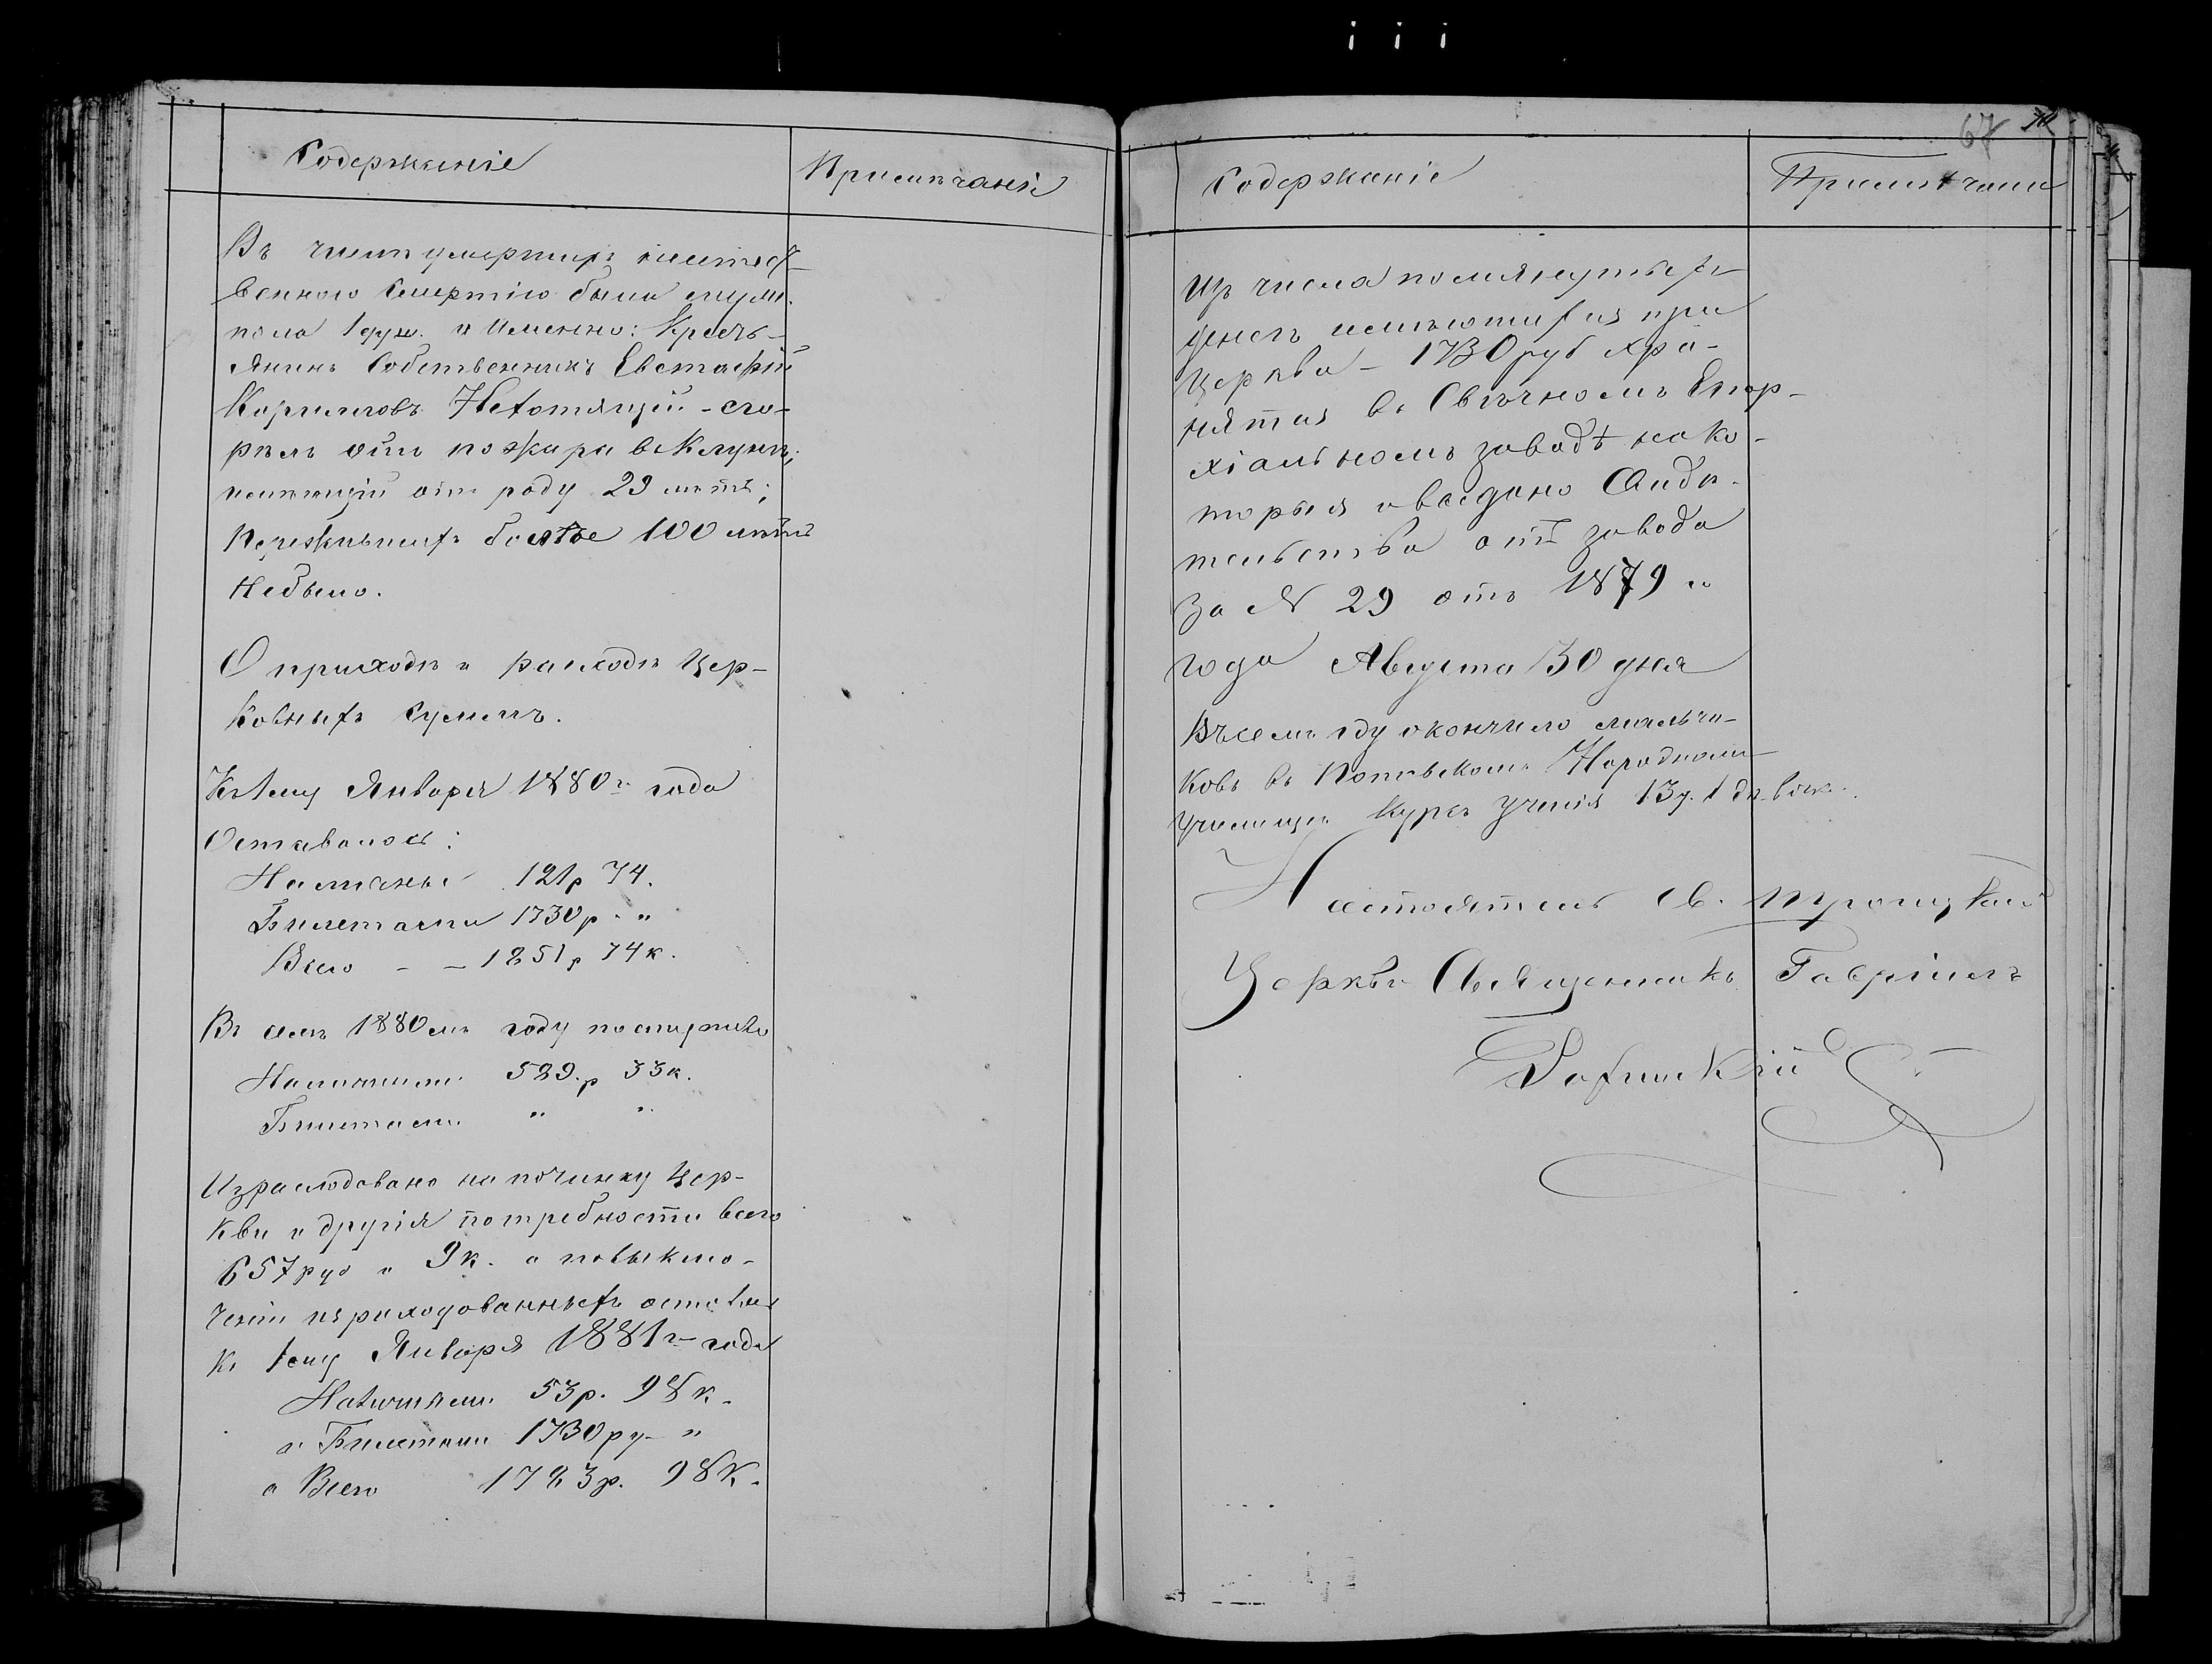 Содержаніе
Примѣчаніе
Въ числѣ умершихъ
венною смертію были муж.
пола 1 душ. а именно: Кресть-
янинъ Собственникъ Евстафій
Корниловъ Нехотящій - сго-
рѣлъ отъ пожара въ Клунѣ;
имѣющій отъ роду 29 лѣтъ;
Пережившихъ болѣе 100 лѣтъ
Небыло.
О приходѣ и расходѣ Цер-
ковныхъ Суммъ.
Къ 1му Января 1880го года
Оставалось:
Наличные 121р 74.
Билетами 1730р. "
Всего - - 1851р 74к.
Въ семъ 1880мъ году поступило
Наличными 589.р 33к.
Билетами " "
Израсходовано на починку Цер-
кви и другія потребности всего
657 руб и 9к. а по выклю-
ченіи израсходованныхъ
къ 1му Января 1881го года
Наличными 53р. 98к.
и Билетами 1730 ру- "
а Всего 1783р. 98к.
67
Содержаніе
Примѣчаніе
Изъ числа помянутыхъ
денегъ имѣющихся при
церкви - 1730 руб хра-
нятся въ Свѣчномъ Епар-
хіальномъ заводѣ на ко-
торыя и выдано Свидѣ-
тельство отъ завода
За № 29 отъ 1879 го
года Августа 30 дня
Въ семъ году окончило мальчи-
ковъ въ Народномъ
Училищѣ Курсъ Ученія 13 у. 1 дѣ-воч.
Настоятель Св. Троицкой
Церкви Священникъ Гавріилъ